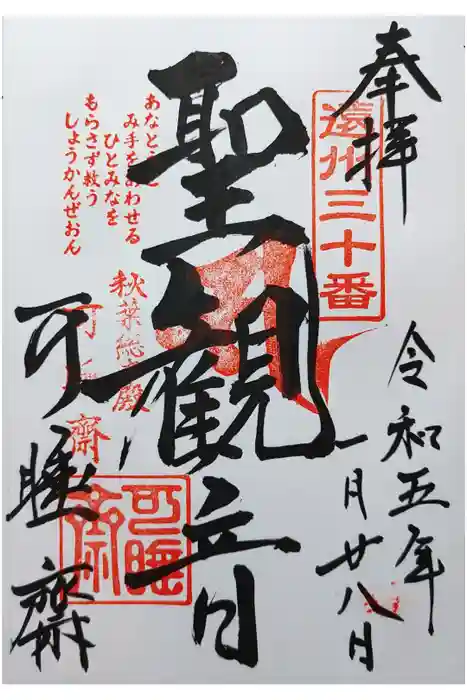 奉拝
遠州三十番
令和五年
一月廿八日
聖観音
み手をあわせる
ひとみなを
もらさず救う
しょうかんぜおん
秋葉総本殿
可睡齋
可睡齋
可睡齋